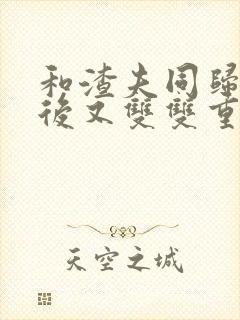 和渣夫同歸
後又雙雙重
天空之城